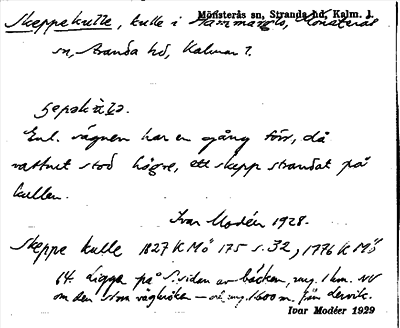 Mönsterås sn, Stranda hd, Kalm. l.
Skeppekulle, kulle i Mönsterås
sn, Stranda hd, Kalmar l.
Enl. sägnen har en gång förr, då
vattnet stod högre, ett skepp strandat på
kullen.
Ivar Modéer 1928.
Skeppe kulle 1827 K Mö 175 s. 32, 1776 K Mö
64. Ligga på S. sidan av bäcken, ung. 1 km. NV
om den stora vägkröken — ung. 1600 m. från
Ivar Modéer 1929